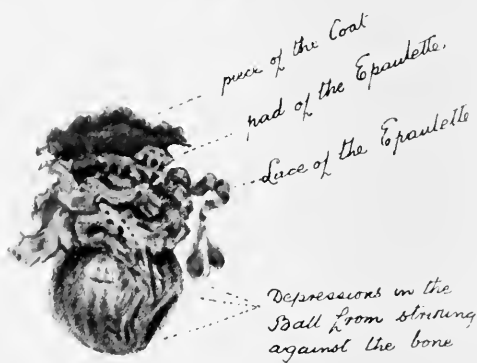 piece of the Coat
pad of the Epaulette.
Lace of the Epaulette
Depressions in the
Ball from striking
against the bone